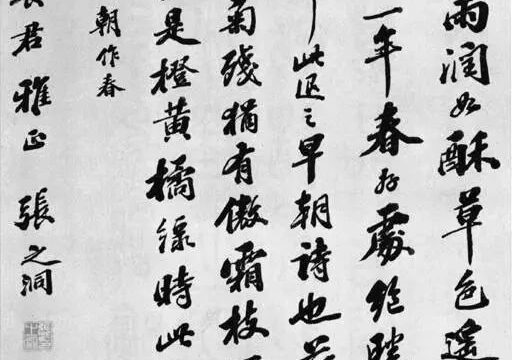 雨潤如酥草色遙
一年春好處絕勝
此退之早朝詩也荷
菊殘猶有傲霜枝
是橙黃橘綠時此
朝作春
君雅正 張之洞